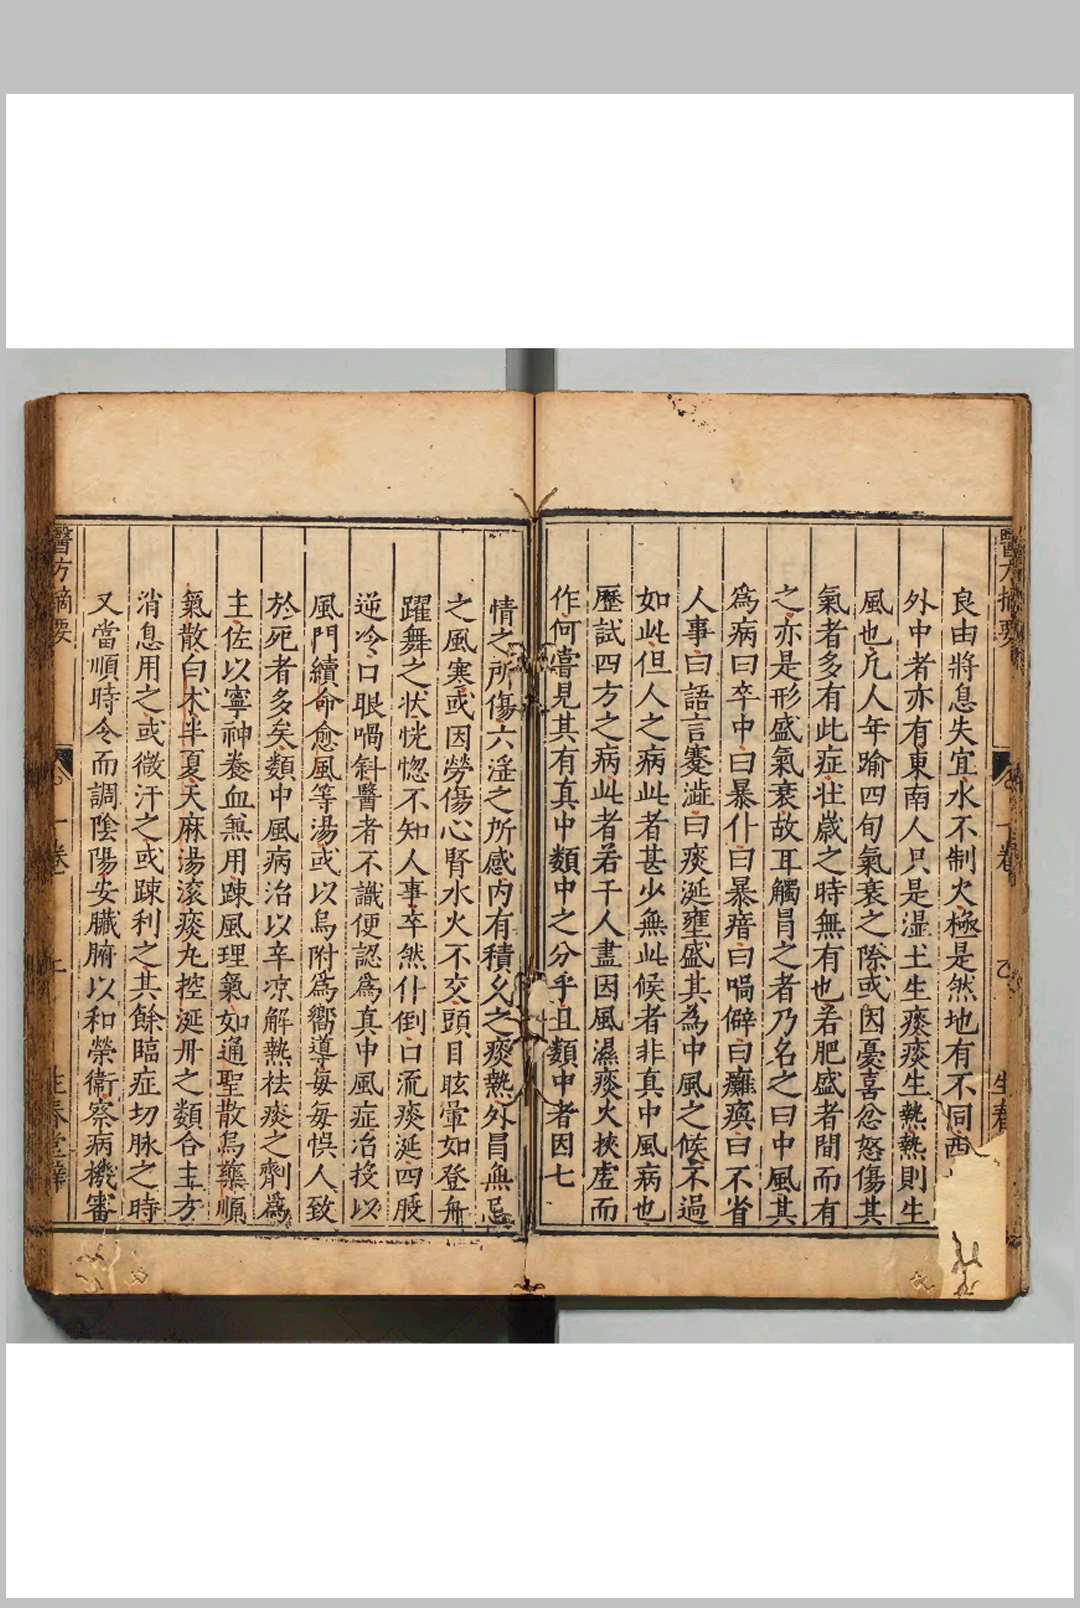 良由將息失宜水不制火極是然地有不同西
外中者亦有東南人只是濕土生痰痰生熱熱則生
風也凢人年踰四旬氣衰之際或因憂喜忿怒傷其
氣者多有此症壮歲之時無有也若肥盛者間而有
之亦是形盛氣衰故耳觸冒之者乃名之曰中風其
爲病曰卒中曰暴仆曰暴瘖曰喎僻曰癱瘓曰不省
人事曰語言蹇澁曰痰涎壅盛其為中風之候不過
如此但人之病此者甚少無此候者非真中風病也
歷試四方之病此者若千人盡因風濕痰火挾虛而
作何嘗見其有真中類中之分乎且類中者因七
情之所傷六淫之所感内有積久之痰熱外冒無忌
之風寒或因勞傷心腎水火不交頭目眩暈如登舟
躍舞之状恍惚不知人事卒然仆倒口流痰涎四肢
逆冷口眼喎斜醫者不識便認爲真中風症治投以
風門續命愈風等湯或以烏附爲嚮導毎毎悮人致
於死者多矣類中風病治以辛凉解熱祛痰之劑爲
主佐以寧神養血兼用踈風理氣如通聖散烏藥順
氣散白术半夏天麻湯滚痰丸控涎丹之類合主方
消息用之或微汗之或踈利之其餘臨症切脉之時
又當順時令而調陰陽安臟腑以和榮衞察病機審
醫方摘要 卷一 七 生春堂梓